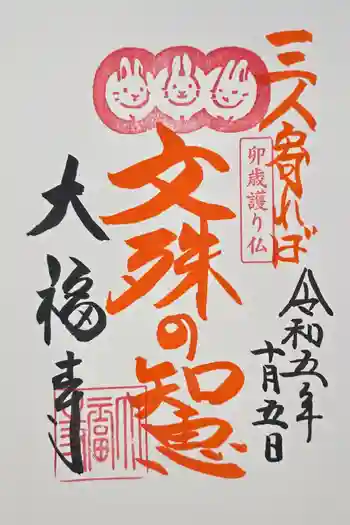 三人寄れば
卯歳護り仏
文殊の知恵
令和五年
十月五日
大福寿